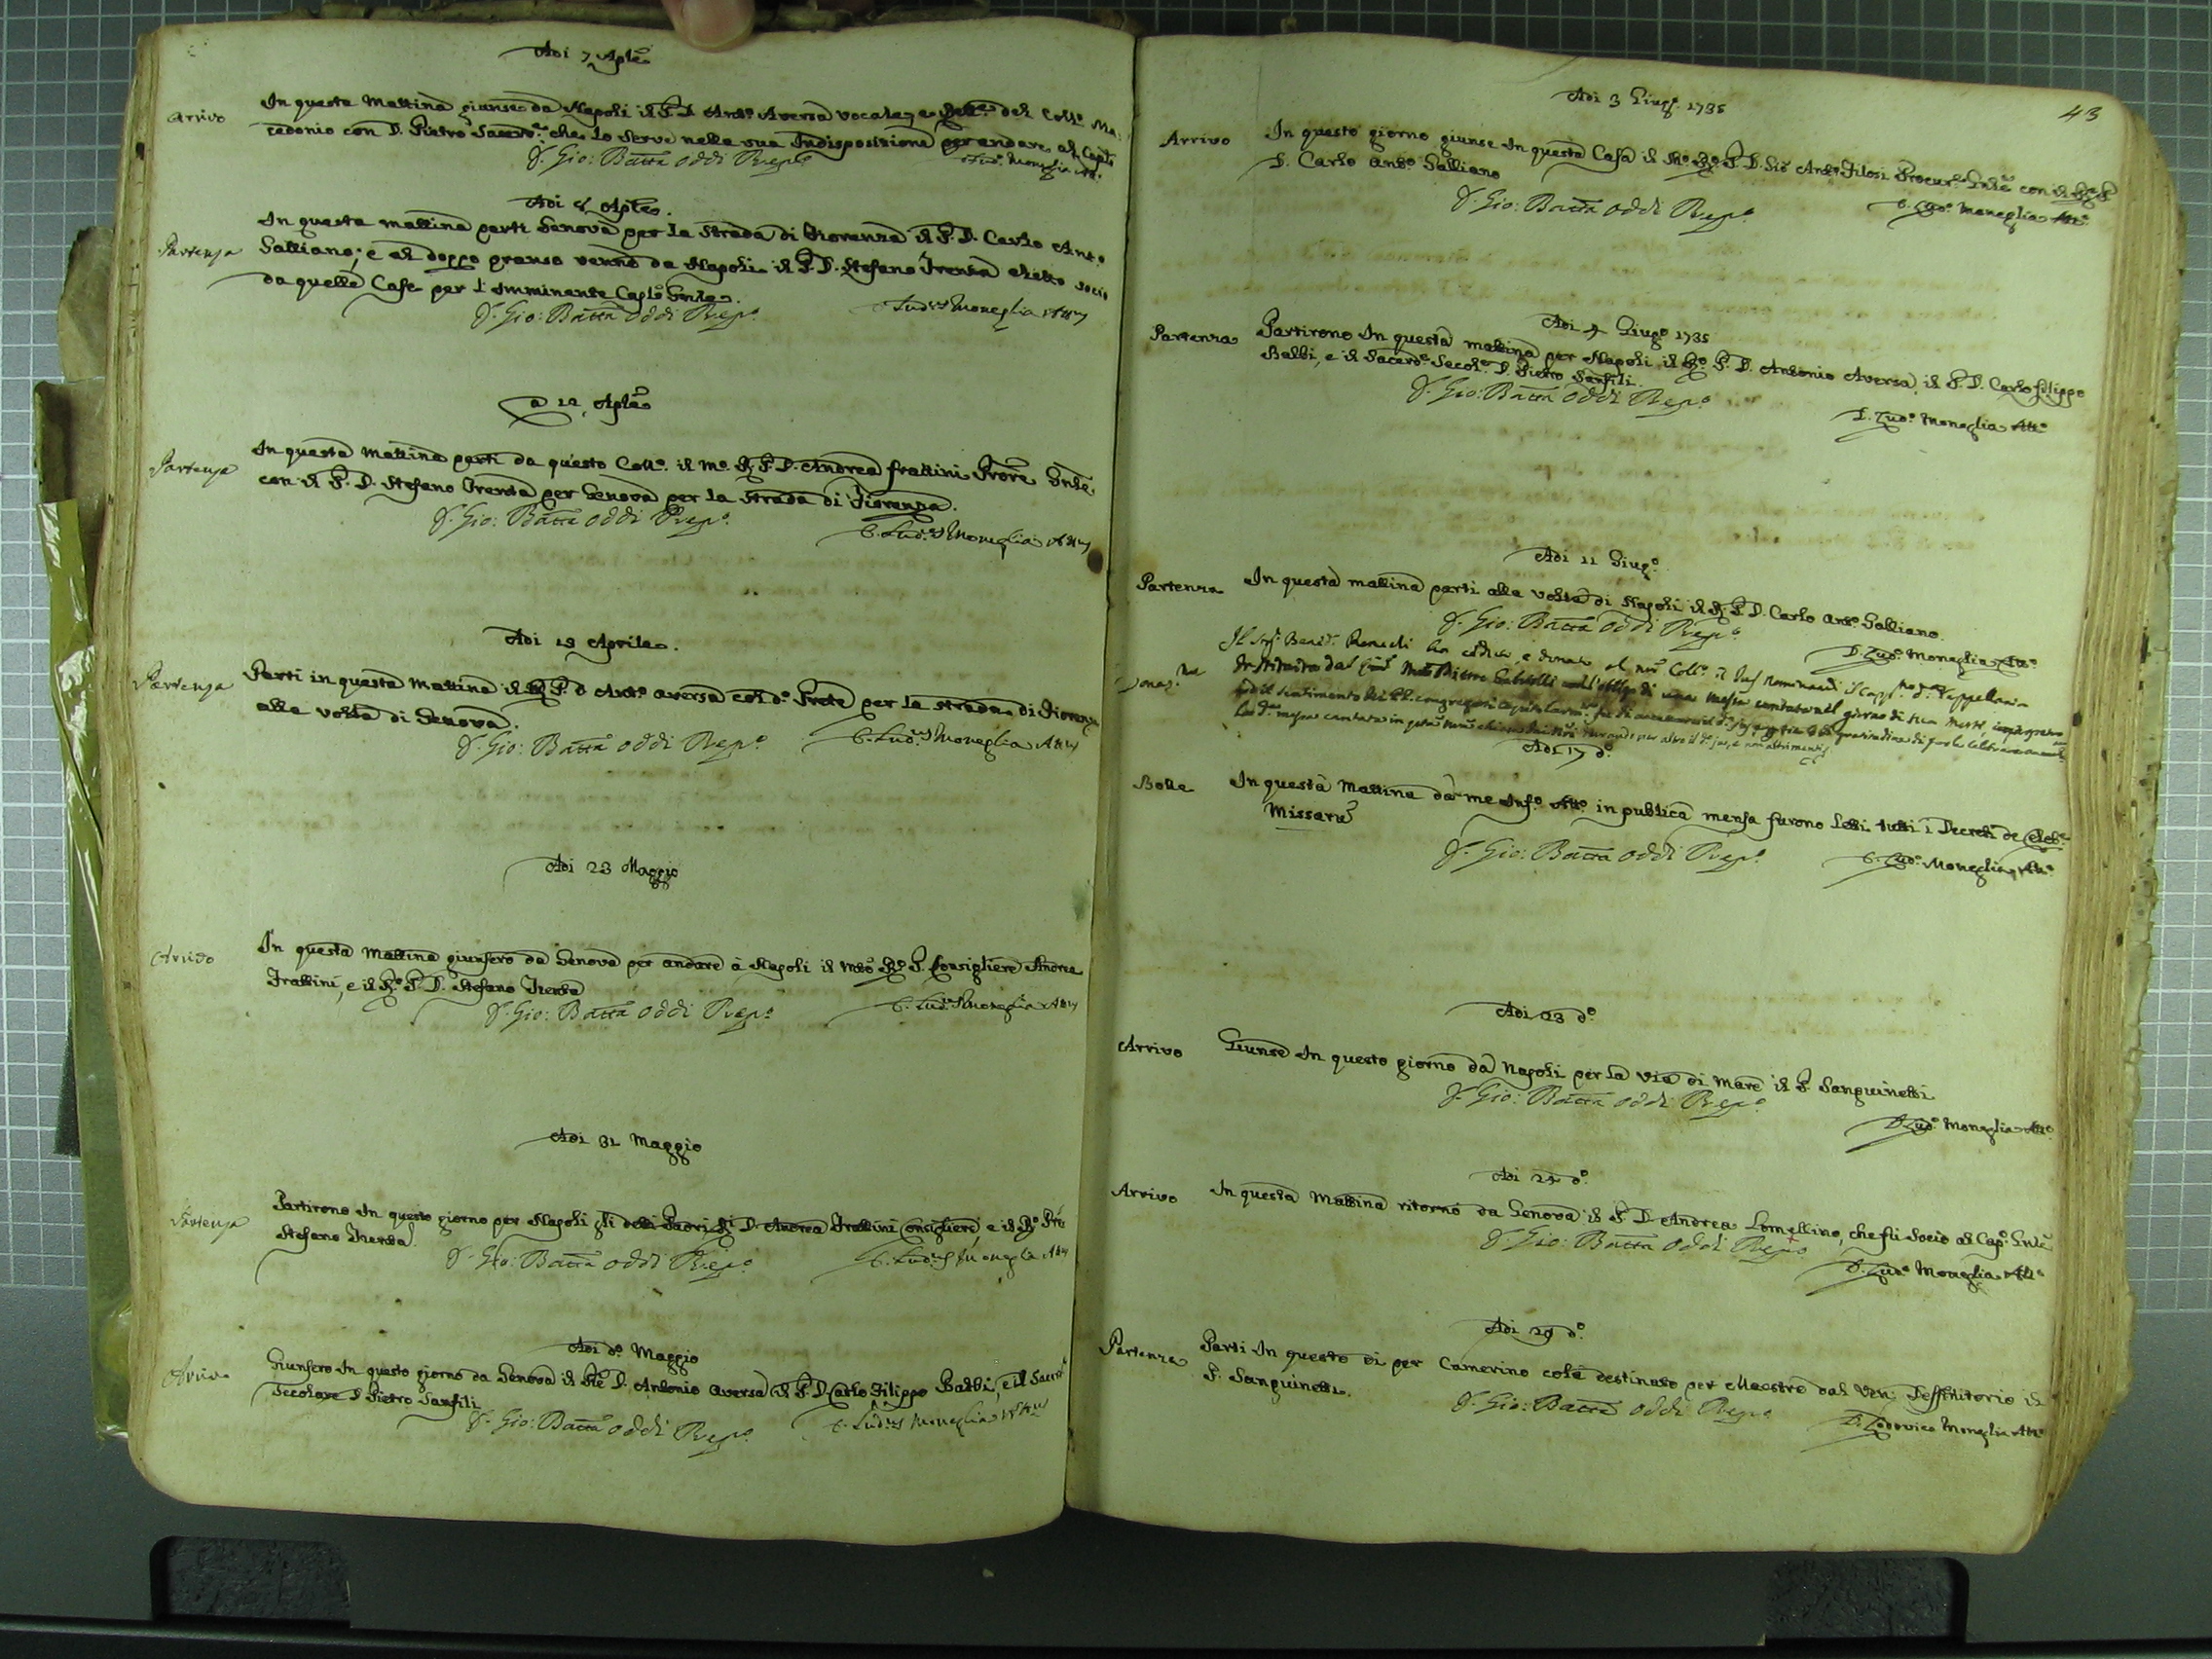 Adi 7 Aple
Arrivo
In questa Mattina giunse da Napoli il P. D. Anto. Aversa vocale, e Rett.e del Coll.o Ma=
cedonio con D. Pietro Sacerd.e che lo serve nella sua Indisposizione per andare al Cap.lo
D. Gio: Batta Oddi Prep.o
Lud. Moneglia
Adi 8 Aple.
Partenza
In questa mattina parti Genova per la strada di Fiorenza il P. D. Carlo Ant.o
Galliano; e al doppo pranso venne da Napoli il P. D. Stefano Trenta eletto socio
da quelle Case per l'imminente Cap.lo Gnle.
D. Gio: Batta Oddi Prep.o
Lud.us Moneglia Att.us
a 12 Aple
Partenza
In questa Mattina parti da questo Coll.o il M.o R. P. D. Andrea Frattini Prore Gnle
con il P. D. Stefano Trenta per Genova per la strada di Fiorenza.
D. Gio: Batta Oddi Prep.o
D. Lud.us Moneglia Att.us
Adi 19 Aprile.
Partenza
Parti in questa Mattina il P. D. Ant.o Aversa col d.o Prete per la strada di Fiorenza
alla volta di Genova.
D. Gio: Batta Oddi Prep.o
D. Lud.us Moneglia Att.us
Adi 23 Maggio
Arrivo
In questa Mattina giunsero da Genova per andare à Napoli il Mto R.o P. Consigliere Andrea
Frattini, e il R.o P. D. Stefano Trenta
D. Gio: Batta Oddi Prep.o
D. Lud.us Moneglia Att.us
Adi 31 Maggio
Partenza
Partirono In questo giorno per Napoli gli detti Padri R. D. Andrea Frattini Consigliere, e il R.o Pre
Stefano Trenta.
D. Gio: Batta Oddi Prep.o
D. Lud.us Moneglia Att.us
Adi d.o Maggio
Arrivo
Giunsero In questo giorno da Genova il Pre D. Antonio Aversa il P. D. Carlo Filippo Balbi, e il Sacerd.e
Secolare D. Pietro Sanfili
D. Gio: Batta Oddi Prep.o
D. Lud.us Moneglia Att.us
43
Adi 3 Giug.o 1735
Arrivo
In questo giorno giunse In questa Casa il M.o R.o P. D. Gio Ant.o Filosi Procur.e Gnle con il
D. Carlo Ant.o Galliano
D. Gio: Batta Oddi Prep.o
D. Lud.o Moneglia Att.o
Adi 4 Giug.o 1735
Partenza
Partirono In questa mattina per Napoli il R.o P. D. Antonio Aversa, il P. D. Carlo Filippo
Balbi, e il Sacerd.e Secol.e D. Pietro Sanfili.
D. Gio: Batta Oddi Prep.o
D. Lud.o Moneglia Att.o
Adi 11 Giug.o
Partenza
In questa mattina parti alla volta di Napoli il R. P. D. Carlo Ant.o Galliano.
D. Gio: Batta Oddi Prep.o
D. Lud.o Moneglia Att.o
Il Sig.r Bened.o ha ceduto, e donato al nro Coll.o il Jus nominandi il Capp.no
Donaz.ne
coll'obligo di una messa cantata nel giorno di sua morte
il sentimento
messa cantata in
Adi 17 d.o
Bolle
In questa Mattina da me Inf.o Att.o in publica mensa furono letti tutti i Decreti de Celeb.e
Missaru
D. Gio: Batta Oddi Prep.o
D. Lud.o Moneglia Att.o
Adi 23 d.o
Arrivo
Giunse In questo giorno da Napoli per la via di Mare il P. Sanguinetti
D. Gio: Batta Oddi Prep.o
D. Lud.o Moneglia Att.o
Adi 25 d.o
Arrivo
In questa Mattina ritornò da Genova il P. D. Andrea Lomellino, che fù Socio al Cap.o Gnle
D. Gio: Batta Oddi Prep.o
D. Lud.o Moneglia Att.o
Adi 29 d.o
Partenza
Parti In questo di per Camerino colà destinato per Maestro dal Ven: Deffinitorio il
P. Sanguinetti.
D. Gio: Batta Oddi Prep.o
D. Lodovico Moneglia Att.o